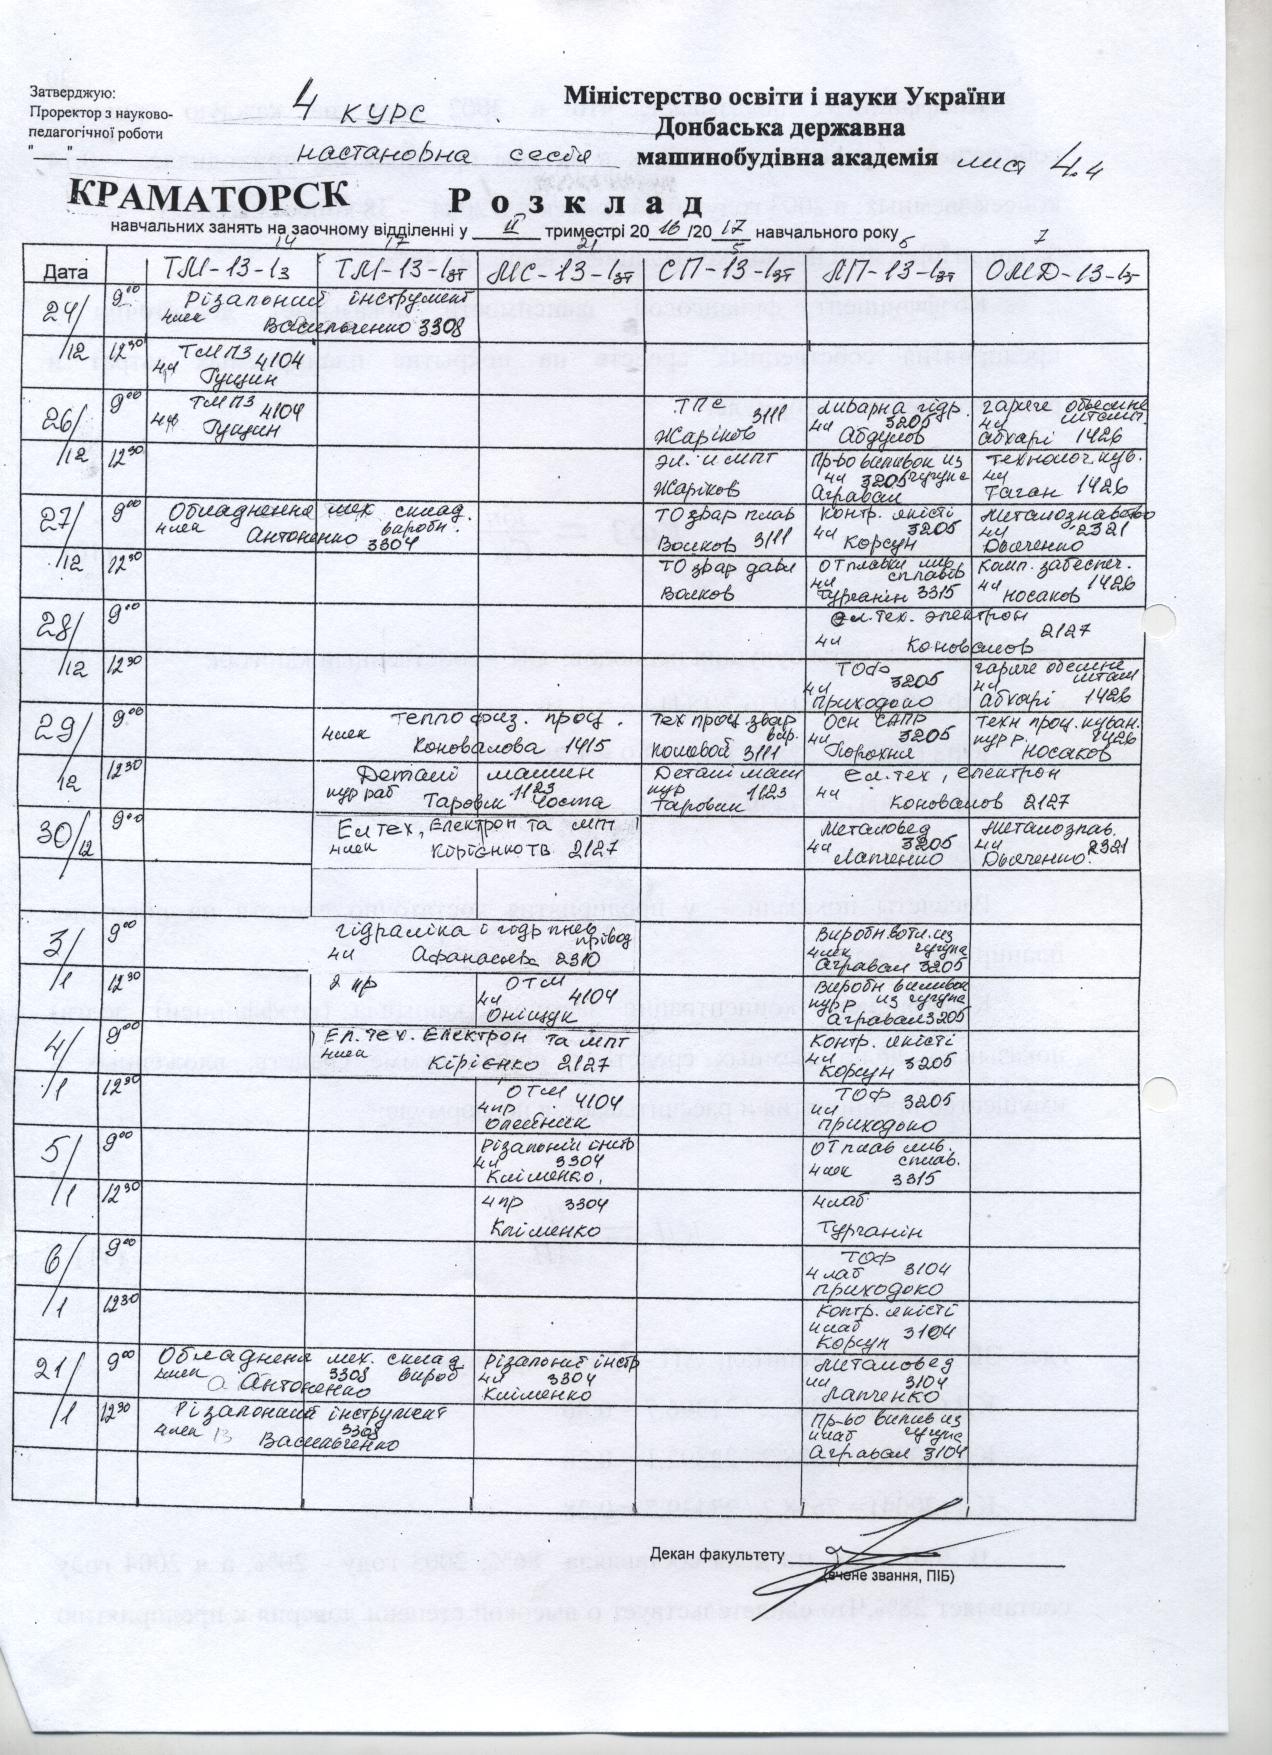 Затверджую:
Проректор з науково-
педагогічної роботи
"____"
4 курс
настановна сесія
Міністерство освіти і науки України
Донбаська державна
машинобудівна академія
лист 4.4
КРАМАТОРСК
Розклад
навчальних занять на заочному відділенні у II триместрі 2016/2017 навчального року
14 17 21 5 6 7
Дата ТМ-13-1з ТМ-13-1зт МС-13-1зт СП-13-1зт ЛП-13-1зт ОМД-13-1з
24/12 9 00 Різальний інструмент
Васильченко 3308
12 30 ТМПЗ 4104
Гущин
26/12 9 00 ТМПЗ 4104
Гущин
ТПС 3111
Жаріков
Ливарна гідр.
4ч 3205
Абдулов
гаряче объемне
штамп.
Абхарі 1426
12 30 Эл. и МПТ
Жаріков
Пр-во виливок из
4ч 3205 чугуна
Агравал
технолог. кув.
4ч
Таган 1426
27/12 9 00 Обладнення мех склад.
виробн.
Антоненко 3304
ТО звар плав
Волков 3111
Контр. якості
4ч 3205
Корсун
Металознавство
4ч 2321
Дьяченко
12 30 ТО звар давл
Волков
ОТ плавки лив
4ч сплавів
Турганін 3315
Комп. забеспеч.
4ч 1426
Носаков
28/12 9 00 Ел.тех. электрон
4ч Коновалов 2127
12 30 ТОФ
4ч 3205
Приходько
гаряче обемне
4ч штам
Абхарі 1426
29/12 9 00 теплофиз. проц.
Коновалова 1415
Тех проц. звар
Полевой 3111
Осн САПР
4ч 3205
Порохня
Техн проц. куван.
кур р. 1426
Носаков
12 30 Деталі машин
кур раб 1123
Таровик Чоста
Деталі маш
кур 1123
Таровик
Ел.тех, електрон
4ч Коновалов 2127
30/12 9 00 Ел тех, Електрон та МПТ
Кірієнко ТВ 2127
Металовед
4ч 3205
Лапченко
Металознав.
4ч 2321
Дьяченко.
3/1 9 00 гідраліка і гідр пнев
привод
4ч Афанасьєв 2310
Виробн. вотл. из
чугуна
Агравал 3205
12 30 2 пр
ОТМ
4ч 4104
Оніщук
Виробн виливок
курр из чугуна
Агравал 3205
4/1 9 00 Ел. тех. Електрон та МПТ
Кірієнко 2127
Контр. якості
4ч
Корсун 3205
12 30 ОТМ 4104
4пр
Олейник
ТОФ 3205
4ч
Приходько
5/1 9 00 Різальний інстр
4ч 3304
Кліменко.
ОТ плав лив.
сплав.
3315
12 30 4пр 3304
Кліменко
4лаб
Турганін
6/1 9 00 ТОФ
4лаб 3104
Приходько
12 30 Контр. якості
4лаб 3104
Корсун
21/1 9 00 Обладнення мех. склад
3308 вироб
Антоненко
Різальний інстр
4ч 3304
Кліменко
Металовед
4ч 3104
Лапченко
12 30 Різальний інструмент
3308
Васильченко
Пр-во вилив из
4лаб чугуна
Агравал 3104
Декан факультету
(вчене звання, ПІБ)